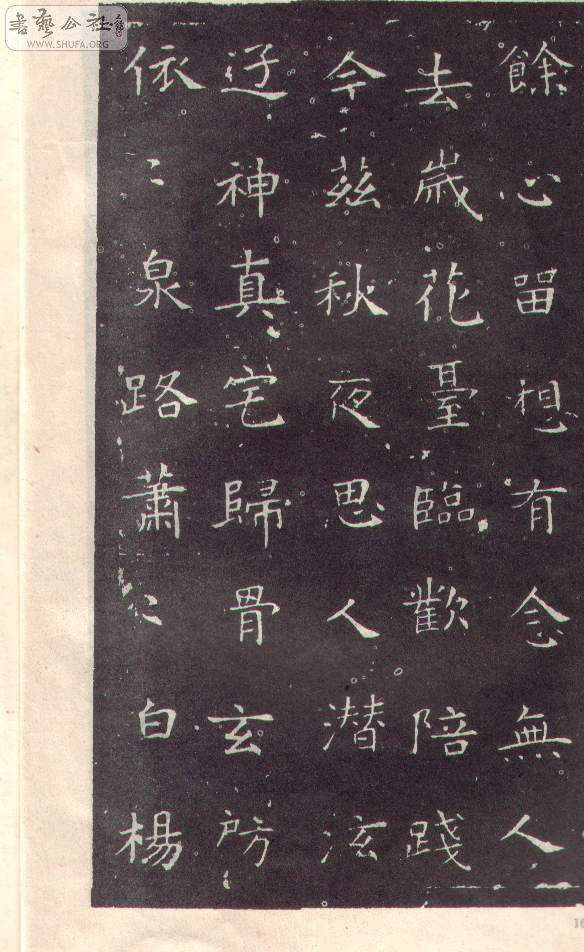 書藝公社
WWW.SHUFA.ORG
餘心留想有念無人
去歲花臺臨歡陪踐
今茲秋夜思人潛泫
迁神真宅歸骨玄房
依〻泉路蕭〻白楊